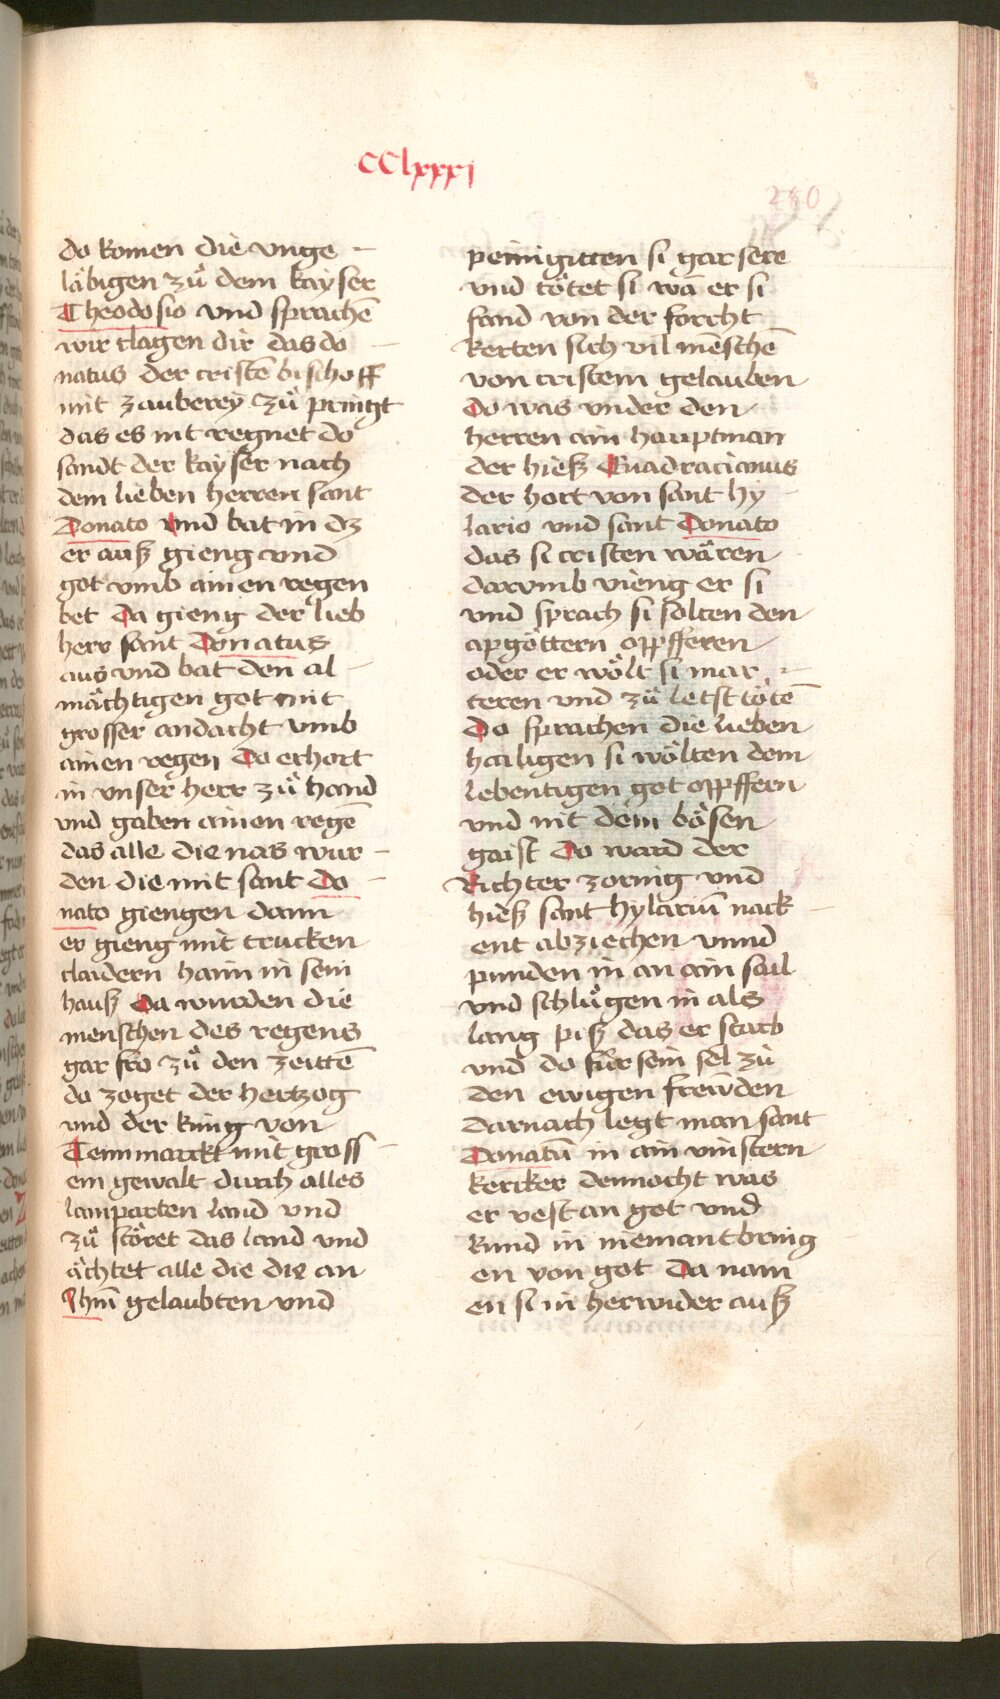 CClxxxj
280
do komen die vnge -
läbigen zů dem kayser
Theodosio vnd sprachē
wir clagen dir das do -
natus der cristē bischoff
mit zauberey zů pringt
das es nit regnet do
sandt der kayser nach
dem lieben herren sant
Donato vnd bat in dz
er auß gieng vnnd
got vmb ainen regen
bet Da gieng der lieb
herr sant Donatus
aus vnd bat den al -
mächtigen got mit
grosser andacht vmb
ainen regen Do erhort
in vnser herr zů hand
vnd gaben ainen regē
das alle die nas wur -
den die mit sant Do -
nato giengen dann
er gieng mit trucken
claidern haim in sein
hauß Da wurden die
menschen des regens
gar fro zů den zeittē
do zoget der hertzog
vnd der kunig von
Tennmarckt mit gross -
em gewalt durch alles
lamparten land vnd
zů störet das land vnd
ächtet alle die die an
Jhm̄ gelaubten vnd
peinigitten si gar sere
vnd tötet si wa er si
fand von der forcht
kerten sich vil mēschē
von cristem gelauben
Do was vnder den
herren ain hauptman
der hieß Quadracianus
der hort von sant hy -
lario vnd sant Donato
das si cristen wären
darvmb vieng er si
vnd sprach si solten den
apgöttern opfferen
oder er wölt si mar -
teren vnd zů letst tötē
Do sprachen die lieben
hailigen si wölten dem
lebentigen got opffern
vnd nit dem bösen
gaist Do ward der
Richter zornig vnd
hieß sant hylariū nack -
ent abziechen vnnd
punden in an ain sail
vnd schlůgen in als
lang piß das er starb
vnd do fůr sein sel zů
den ewigen frewden
Darnach legt man sant
Donatū in ain vinstern
kercker dennocht was
er vest an got vnd
kund in niemant bring
en von got Da nam
en si in herwider auß